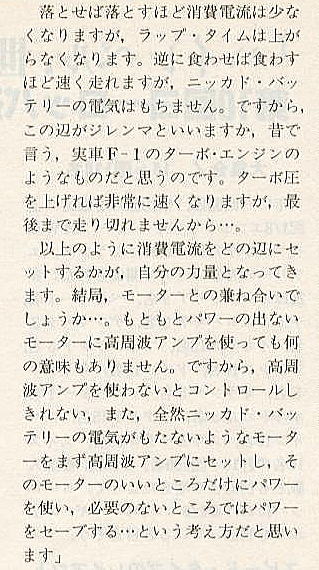 落とせば落とすほど消費電流は少な
くなりますが，ラップ・タイムは上が
らなくなります。逆に食わせば食わす
ほど速く走れますが，ニッカド・バッ
テリーの電気はもちません。ですから，
この辺がジレンマといいますか，昔で
言う，実車F-1のターボ・エンジンの
ようなものだと思うのです。ターボ圧
を上げれば非常に速くなりますが，最
後まで走り切れませんから…。
以上のように消費電流をどの辺にセ
ットするかが，自分の力量となってき
ます。結局，モーターとの兼ね合いで
しょうか…。もともとパワーの出ない
モーターに高周波アンプを使っても何
の意味もありません。ですから，高周
波アンプを使わないとコントロールし
きれない，また，全然ニッカド・バッ
テリーの電気がもたないようなモータ
ーをまず高周波アンプにセットし，そ
のモーターのいいところだけにパワー
を使い，必要のないところではパワー
をセーブする…という考え方だと思い
ます」